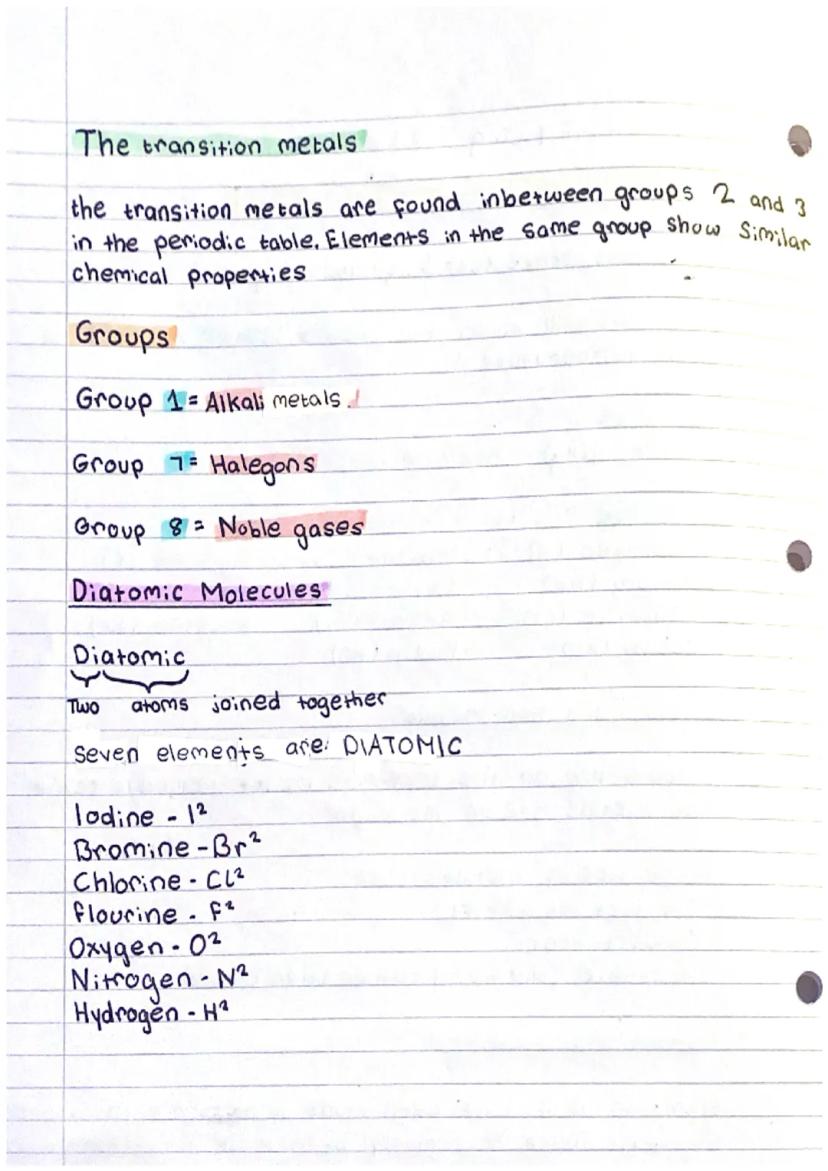 The transition metals
the transition metals are found inbetween groups 2 and 3
in the periodic table. Elements in the same group show similar
chemical properties
Groups
Group 1 = Alkali metals.
Group 7 = Halegons
Group 8 = Noble gases
Diatomic Molecules
Diatomic
Two atoms joined together
Seven elements are: DIATOMIC
Iodine - I²
Bromine - Br²
Chlorine - Cl²
flourine - F²
Oxygen - O²
Nitrogen - N²
Hydrogen - H²